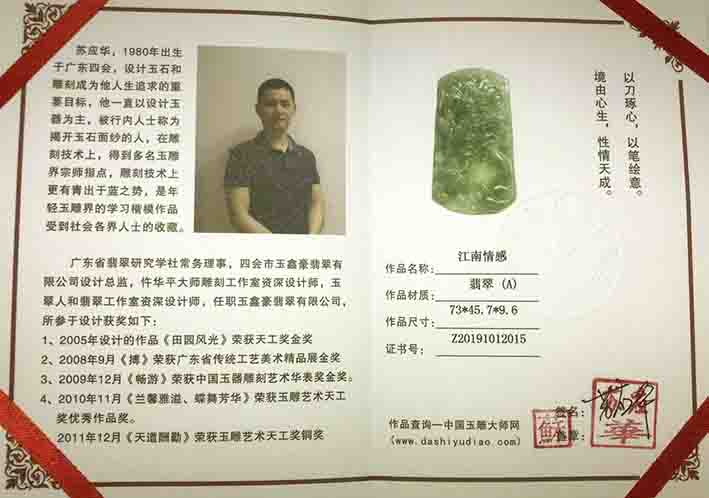 苏应华，1980年出生
于广东四会，设计玉石和
雕刻成为他人生追求的重
要目标，他一直以设计玉
器为主，被行内人士称为
揭开玉石面纱的人，在雕
刻技术上，得到多名玉雕
界宗师指点，雕刻技术上
更有青出于蓝之势，是年
轻玉雕界的学习楷模作品
受到社会各界人士的收藏。
广东省翡翠研究学社常务理事，四会市玉鑫豪翡翠有
限公司设计总监，仵华平大师雕刻工作室资深设计师，玉
翠人和翡翠工作室资深设计师，任职玉鑫豪翡翠有限公司，
所参与设计获奖如下：
1、2005年设计的作品《田园风光》荣获天工奖金奖
2、2008年9月《搏》荣获广东省传统工艺美术精品展金奖
3、2009年12月《畅游》荣获中国玉器雕刻艺术华表奖金奖。
4、2010年11月《兰馨雅溢、蝶舞芳华》荣获玉雕艺术天工
奖优秀作品奖。
2011年12月《天道酬勤》荣获玉雕艺术天工奖铜奖
以刀琢心，以笔绘意。
境由心生，性情天成。
作品名称：江南情感
作品材质：翡翠 (A)
作品尺寸：73*45.7*9.6
证书号：Z20191012015
签名：
盖章：
作品查询一中国玉雕大师网
(www.dashiyudiao.com)